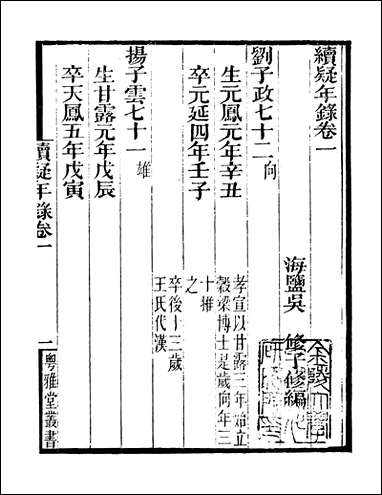 續疑年錄卷一
海鹽吳　修子修編
劉子政七十二向
生元鳳元年辛丑
卒元延四年壬子
孝宣以甘露三年始立
穀梁博士是歲向年三
十推
之
卒後十三歲
王氏代漢
揚子雲七十一雄
生甘露元年戊辰
卒天鳳五年戊寅
續疑年錄卷一
一
粵雅堂叢書